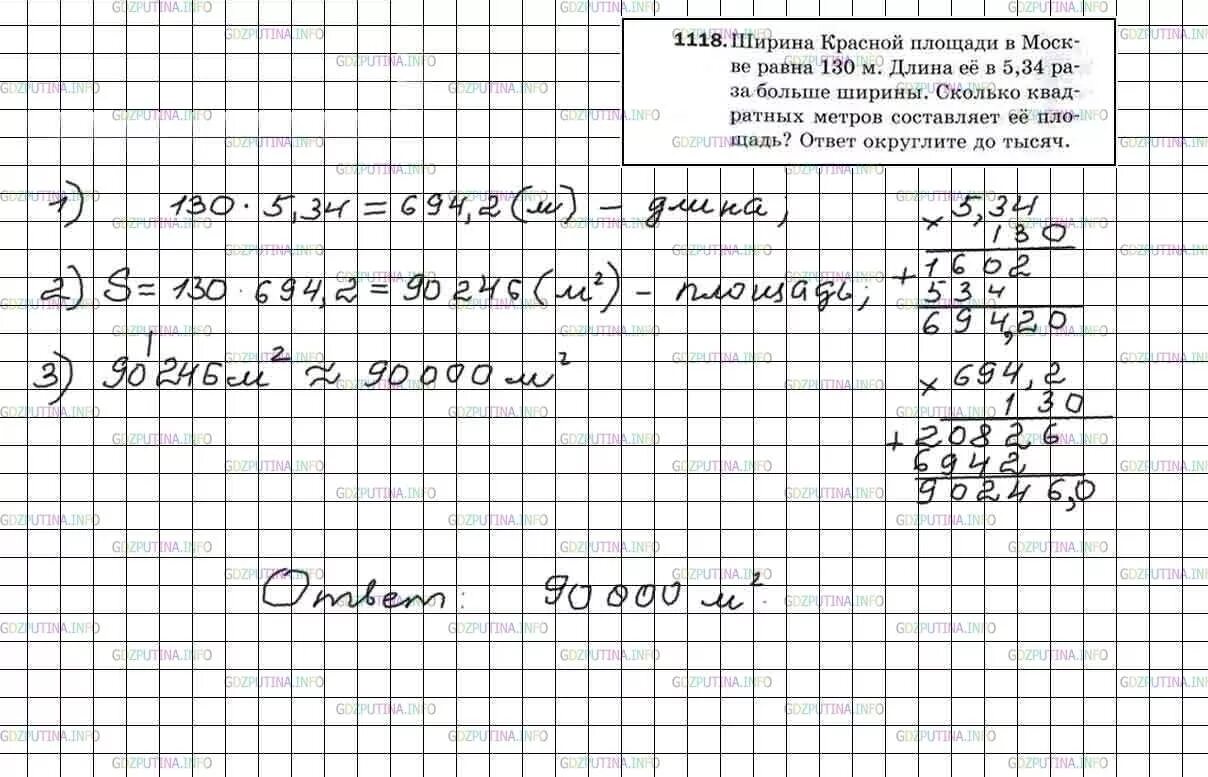 1118. Ширина Красной площади в Моск-
ве равна 130 м. Длина её в 5,34 ра-
за больше ширины. Сколько квад-
ратных метров составляет её пло-
щадь? Ответ округлите до тысяч.
1) 130 · 5,34 = 694,2 (м) – длина;
2) S = 130 · 694,2 = 90 246 (м²) – площадь;
3) 90 246 м² ≈ 90 000 м²
× 5,34
130
+ 1602
534
694,20
× 694,2
130
+ 20826
6942
90246,0
Ответ: 90 000 м².
GDZPUTINA.INFO